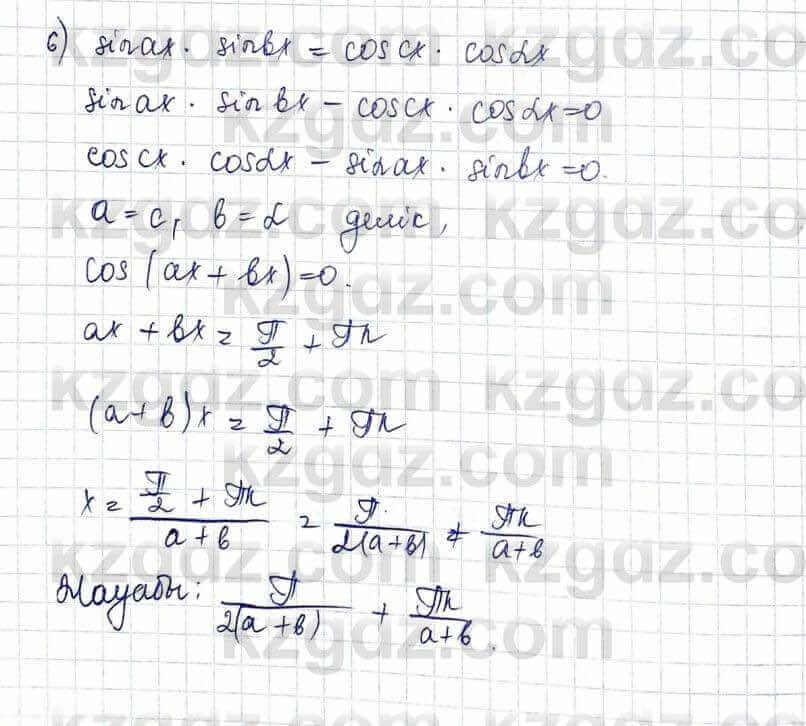 б) sin ax · sin bx = cos cx · cos dx
sin ax · sin bx − cos cx · cos dx = 0
cos cx · cos dx − sin ax · sin bx = 0.
a = c, b = d делік,
cos (ax + bx) = 0.
ax + bx = π/2 + πn
(a + b) x = π/2 + πn
x = (π/2 + πn)/(a + b) = π/(2(a + b)) + πn/(a + b)
Жауабы: π/(2(a + b)) + πn/(a + b).
kzgdz.com